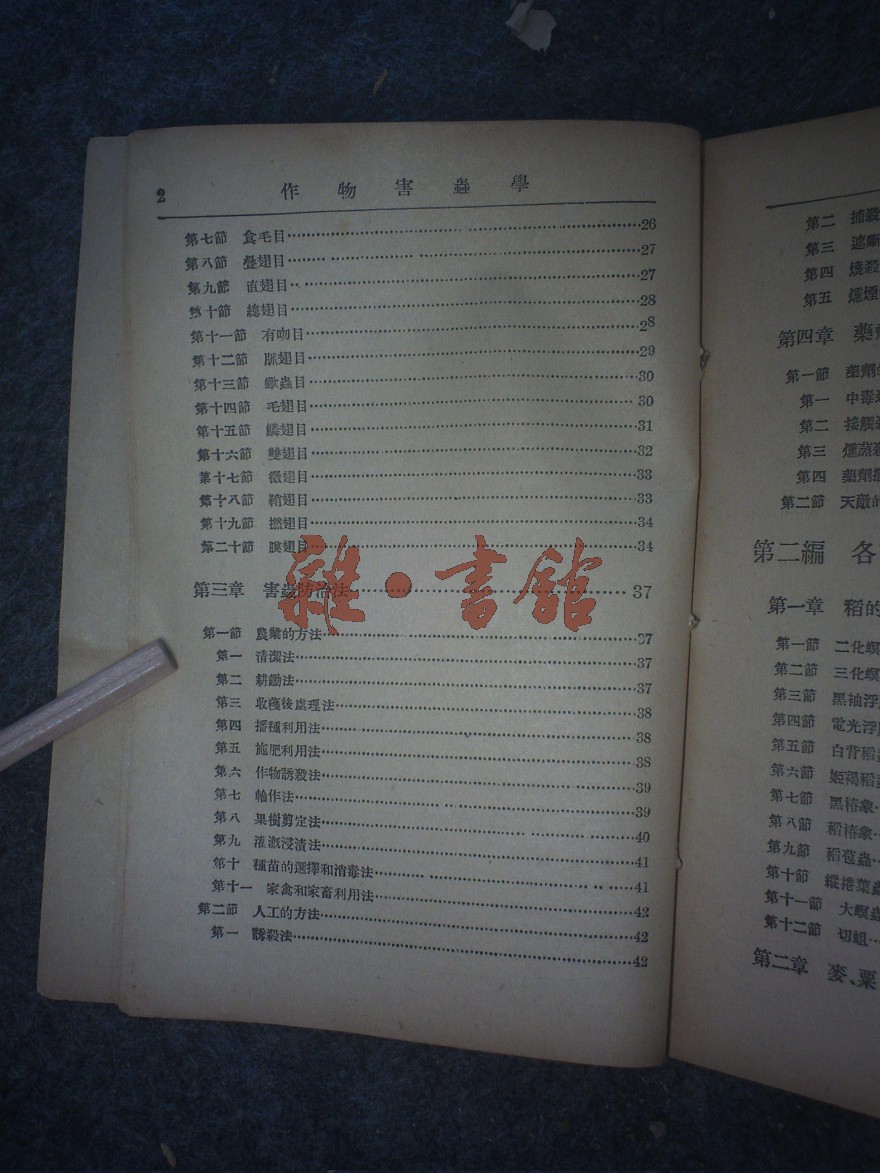 2 作物害蟲學
第七節 食毛目 26
第八節 疊翅目 27
第九節 直翅目 27
第十節 總翅目 28
第十一節 有吻目 28
第十二節 脈翅目 29
第十三節 蠍蟲目 30
第十四節 毛翅目 30
第十五節 鱗翅目 31
第十六節 雙翅目 32
第十七節 微翅目 33
第十八節 鞘翅目 33
第十九節 撚翅目 34
第二十節 膜翅目 34
雜·書館
第三章 害蟲防治法 37
第一節 農業的方法 37
第一 清潔法 37
第二 耕鋤法 37
第三 收穫後處理法 38
第四 播種利用法 38
第五 施肥利用法 38
第六 作物誘殺法 39
第七 輪作法 39
第八 果樹剪定法 40
第九 灌漑浸漬法 41
第十 種苗的選擇和消毒法 41
第十一 家禽和家畜利用法 42
第二節 人工的方法 42
第一 誘殺法 42
第二 捕殺
第三 遮斷
第四 燒殺
第五 燻煙
第四章 藥
第一節 藥劑的
第一 中毒
第二 接觸
第三 燻蒸
第四 藥劑
第二節 天敵的
第二編 各
第一章 稻的
第一節 二化螟
第二節 三化螟
第三節 黑袖浮
第四節 電光浮
第五節 白背稻
第六節 姬褐稻
第七節 黑椿象
第八節 稻椿象
第九節 稻苞蟲
第十節 縱捲葉蟲
第十一節 大螟蟲
第十二節 切蛆
第二章 麥、粟